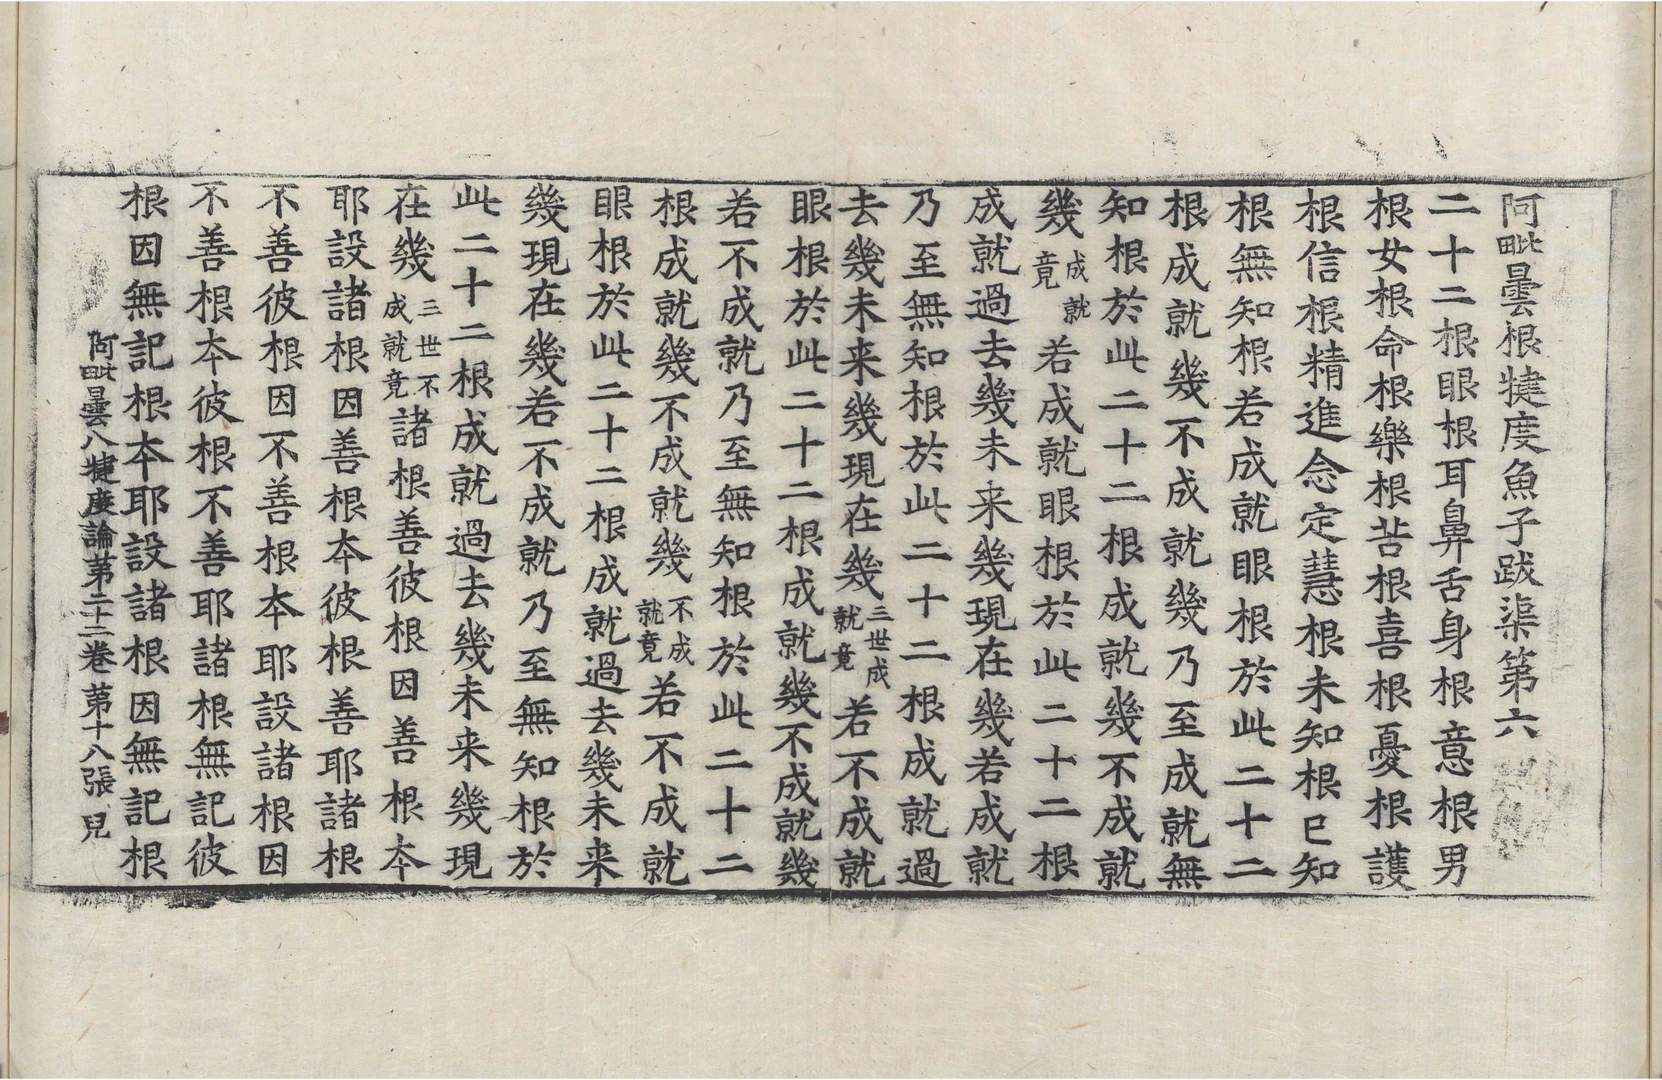 阿毗曇根犍度魚子跋渠第六
二十二根眼根耳鼻舌身根意根男
根女根命根樂根苦根喜根憂根護
根信根精進念定慧根未知根已知
根無知根若成就眼根於此二十二
根成就幾不成就幾乃至成就無
知根於此二十二根成就幾不成就
幾成就竟若成就眼根於此二十二根
成就過去幾未来幾現在幾若成就
乃至無知根於此二十二根成就過
去幾未来幾現在幾三世成就竟若不成就
眼根於此二十二根成就幾不成就幾
若不成就乃至無知根於此二十二
根成就幾不成就幾不成就竟若不成就
眼根於此二十二根成就過去幾未来
幾現在幾若不成就乃至無知根於
此二十二根成就過去幾未来幾現
在幾三世不成就竟諸根善彼根因善根本
耶設諸根因善根本彼根善耶諸根
不善彼根因不善根本耶設諸根因
不善根本彼根不善耶諸根無記彼
根因無記根本耶設諸根因無記根
阿毗曇八犍度論第二十二卷 第十八張 兒